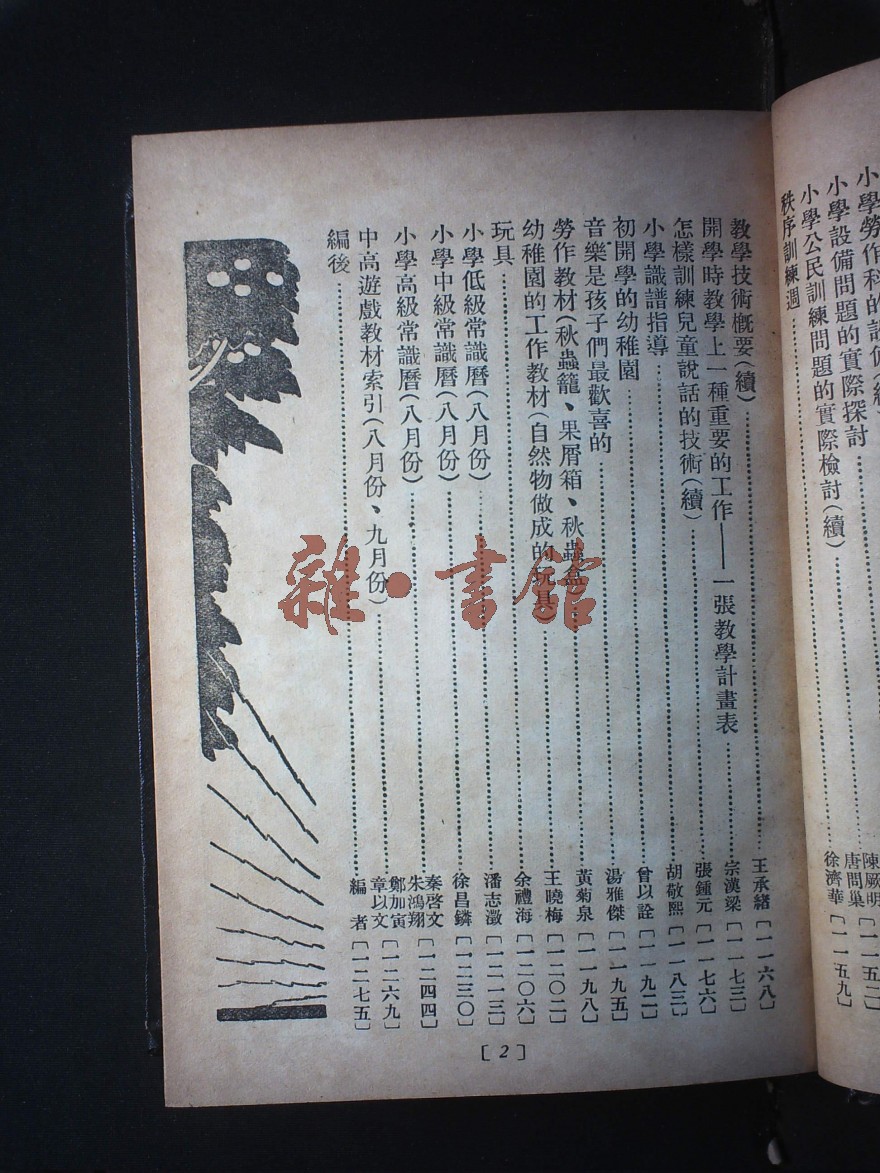 小學設備問題的實際探討
小學公民訓練問題的實際檢討(續)……陳厥明 唐問巢[一一五二]
秩序訓練週……徐濟華[一一五九]
教學技術概要(續)……王承緒[一一六八]
開學時教學上一種重要的工作——一張教學計畫表……宗漢梁[一一七三]
怎樣訓練兒童說話的技術(續)……張鍾元[一一七六]
小學識譜指導……胡敬熙[一一八三]
初開學的幼稚園……曾以詮[一一九二]
音樂是孩子們最歡喜的……湯雅傑[一一九五]
勞作教材(秋蟲籠、果屑箱、秋蟲盒)……黃菊泉[一一九八]
幼稚園的工作教材(自然物做成的玩具)……王曉梅[一二〇二]
玩具……余禮海[一二〇六]
小學低級常識曆(八月份)……潘志澂[一二一三]
小學中級常識曆(八月份)……徐昌鏻[一二三〇]
小學高級常識曆(八月份)……秦啓文 朱鴻翔[一二四四]
中高遊戲教材索引(八月份、九月份)……鄭加寅 章以文[一二六九]
編後……編者[一二七五]
[2]
雜·書館